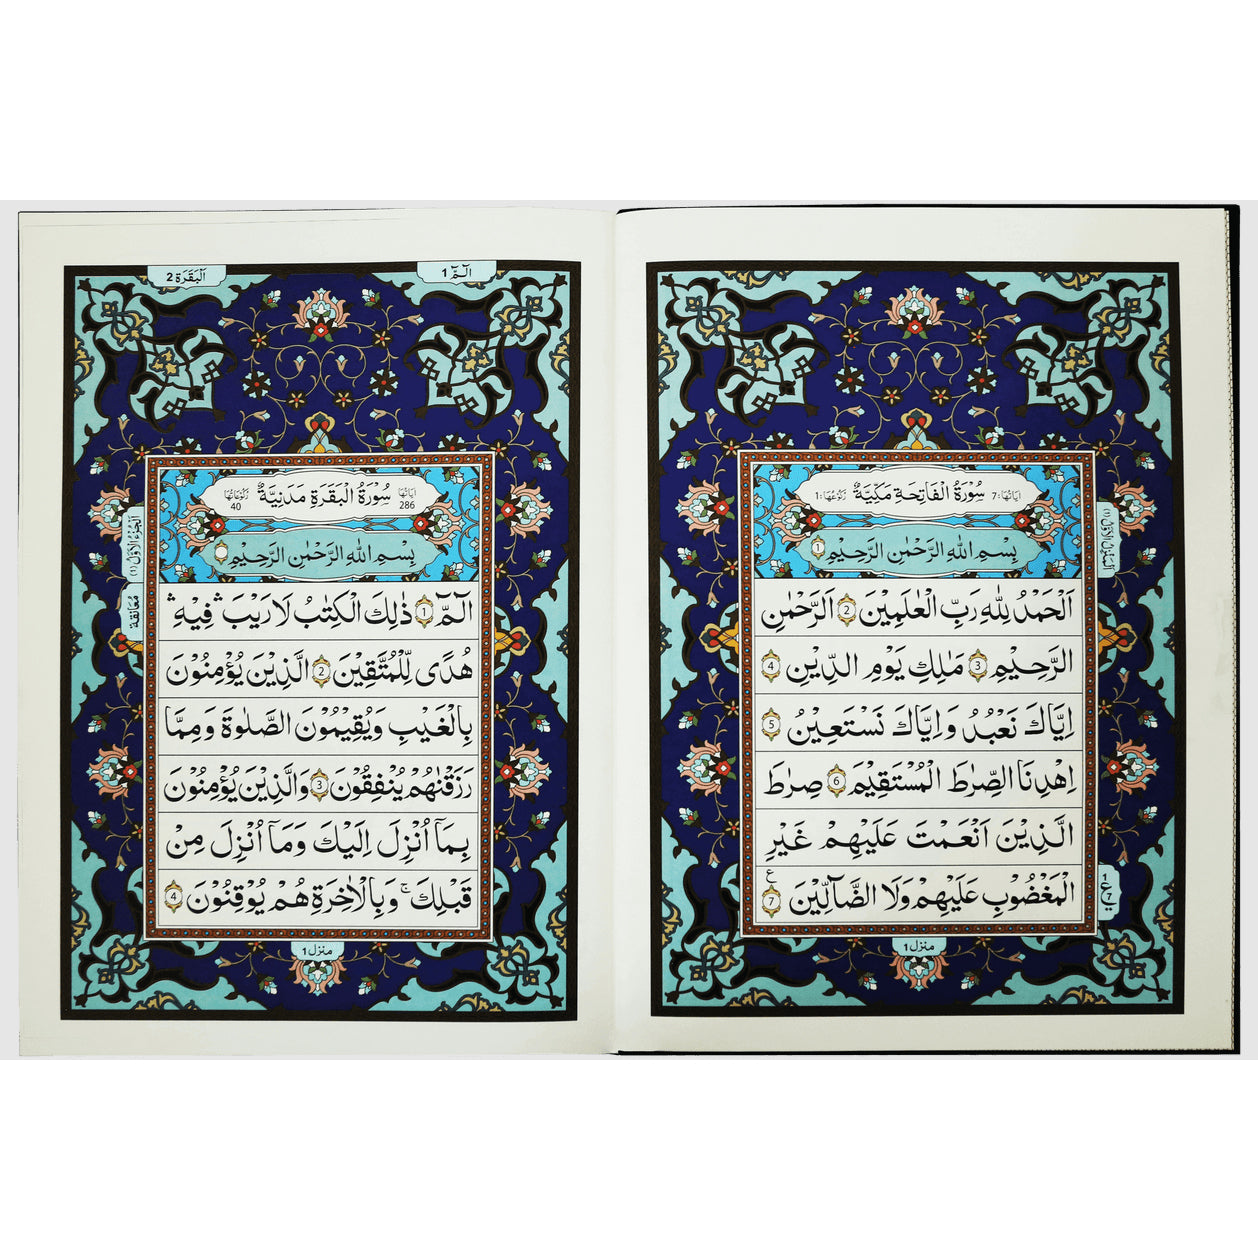 سُوْرَةُ الْفَاتِحَةِ مَكِّيَّةٌ
اٰيَاتُهَا: 7
رُكُوْعُهَا: 1
بِسْمِ اللهِ الرَّحْمٰنِ الرَّحِيْمِ 1
اَلْحَمْدُ لِلّٰهِ رَبِّ الْعٰلَمِيْنَ 2 الرَّحْمٰنِ
الرَّحِيْمِ 3 مٰلِكِ يَوْمِ الدِّيْنِ 4
اِيَّاكَ نَعْبُدُ وَاِيَّاكَ نَسْتَعِيْنُ 5
اِهْدِنَا الصِّرٰطَ الْمُسْتَقِيْمَ 6 صِرٰطَ
الَّذِيْنَ اَنْعَمْتَ عَلَيْهِمْ غَيْرِ
الْمَغْضُوْبِ عَلَيْهِمْ وَلَا الضَّآلِّيْنَ 7
ع
1
ع
7
منزل 1
الٓمّٓ 1
اَلْبَقَرَة 2
سُوْرَةُ الْبَقَرَةِ مَدَنِيَّةٌ
اٰيَاتُهَا 286
رُكُوْعَاتُهَا 40
بِسْمِ اللهِ الرَّحْمٰنِ الرَّحِيْمِ
الٓمّٓ 1 ذٰلِكَ الْكِتٰبُ لَا رَيْبَ ۛ فِيْهِ ۛ
هُدًى لِّلْمُتَّقِيْنَ 2 الَّذِيْنَ يُؤْمِنُوْنَ
بِالْغَيْبِ وَيُقِيْمُوْنَ الصَّلٰوةَ وَمِمَّا
رَزَقْنٰهُمْ يُنْفِقُوْنَ 3 وَالَّذِيْنَ يُؤْمِنُوْنَ
بِمَآ اُنْزِلَ اِلَيْكَ وَمَآ اُنْزِلَ مِنْ
قَبْلِكَ ۚ وَبِالْاٰخِرَةِ هُمْ يُوْقِنُوْنَ 4
اَلْجُزْءُ الْاَوَّلُ (1)
مُعَانَقَة
منزل 1